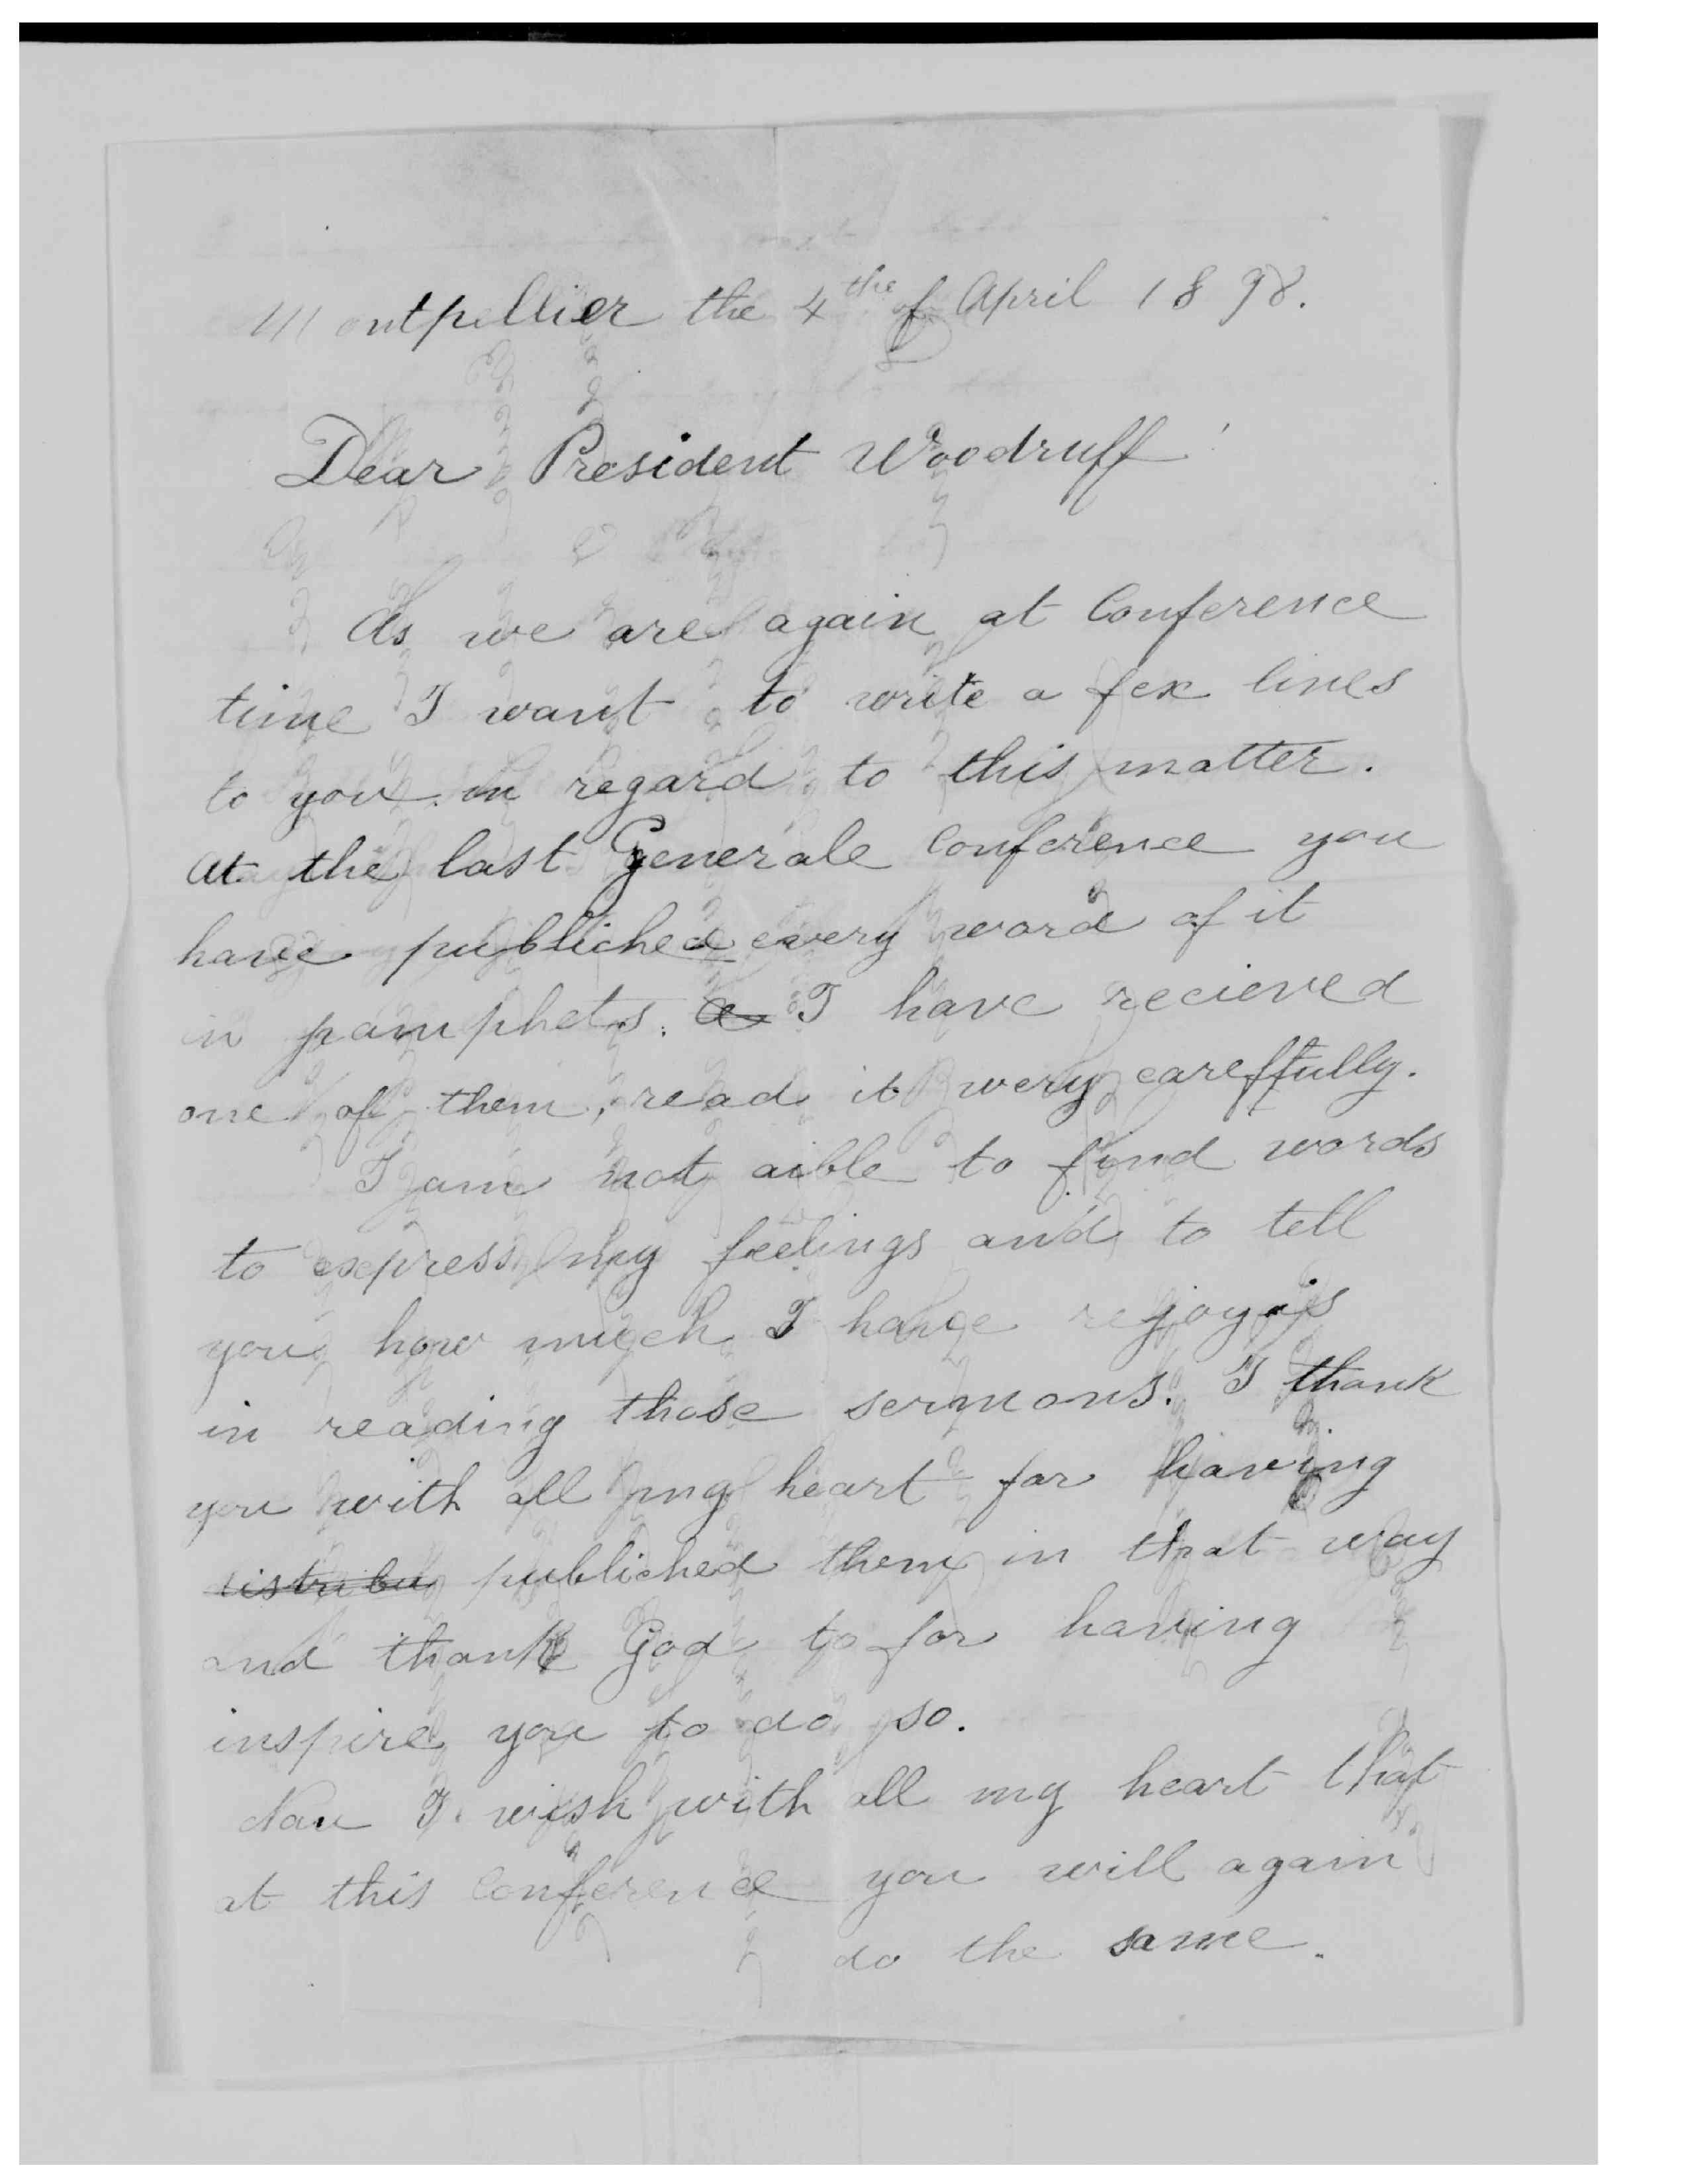 Montpellier the 4the of April 1898.
Dear President Woodruff!
As we are again at Conference
time I want to write a fex lines
to you in regard to this matter.
At the last Generale Conference you
have publiched every word of it
in pamphets. I have recieved
one of them, read it wery careffully.
I am not aible to find words
to express my feelings and to tell
you how much I have
in reading those sermons. I thank
you with all my heart for having
distribu published them in that way
and thank God to for having
inspire you to do so.
Nau I wish with all my heart that
at this Conference you will again
do the same.